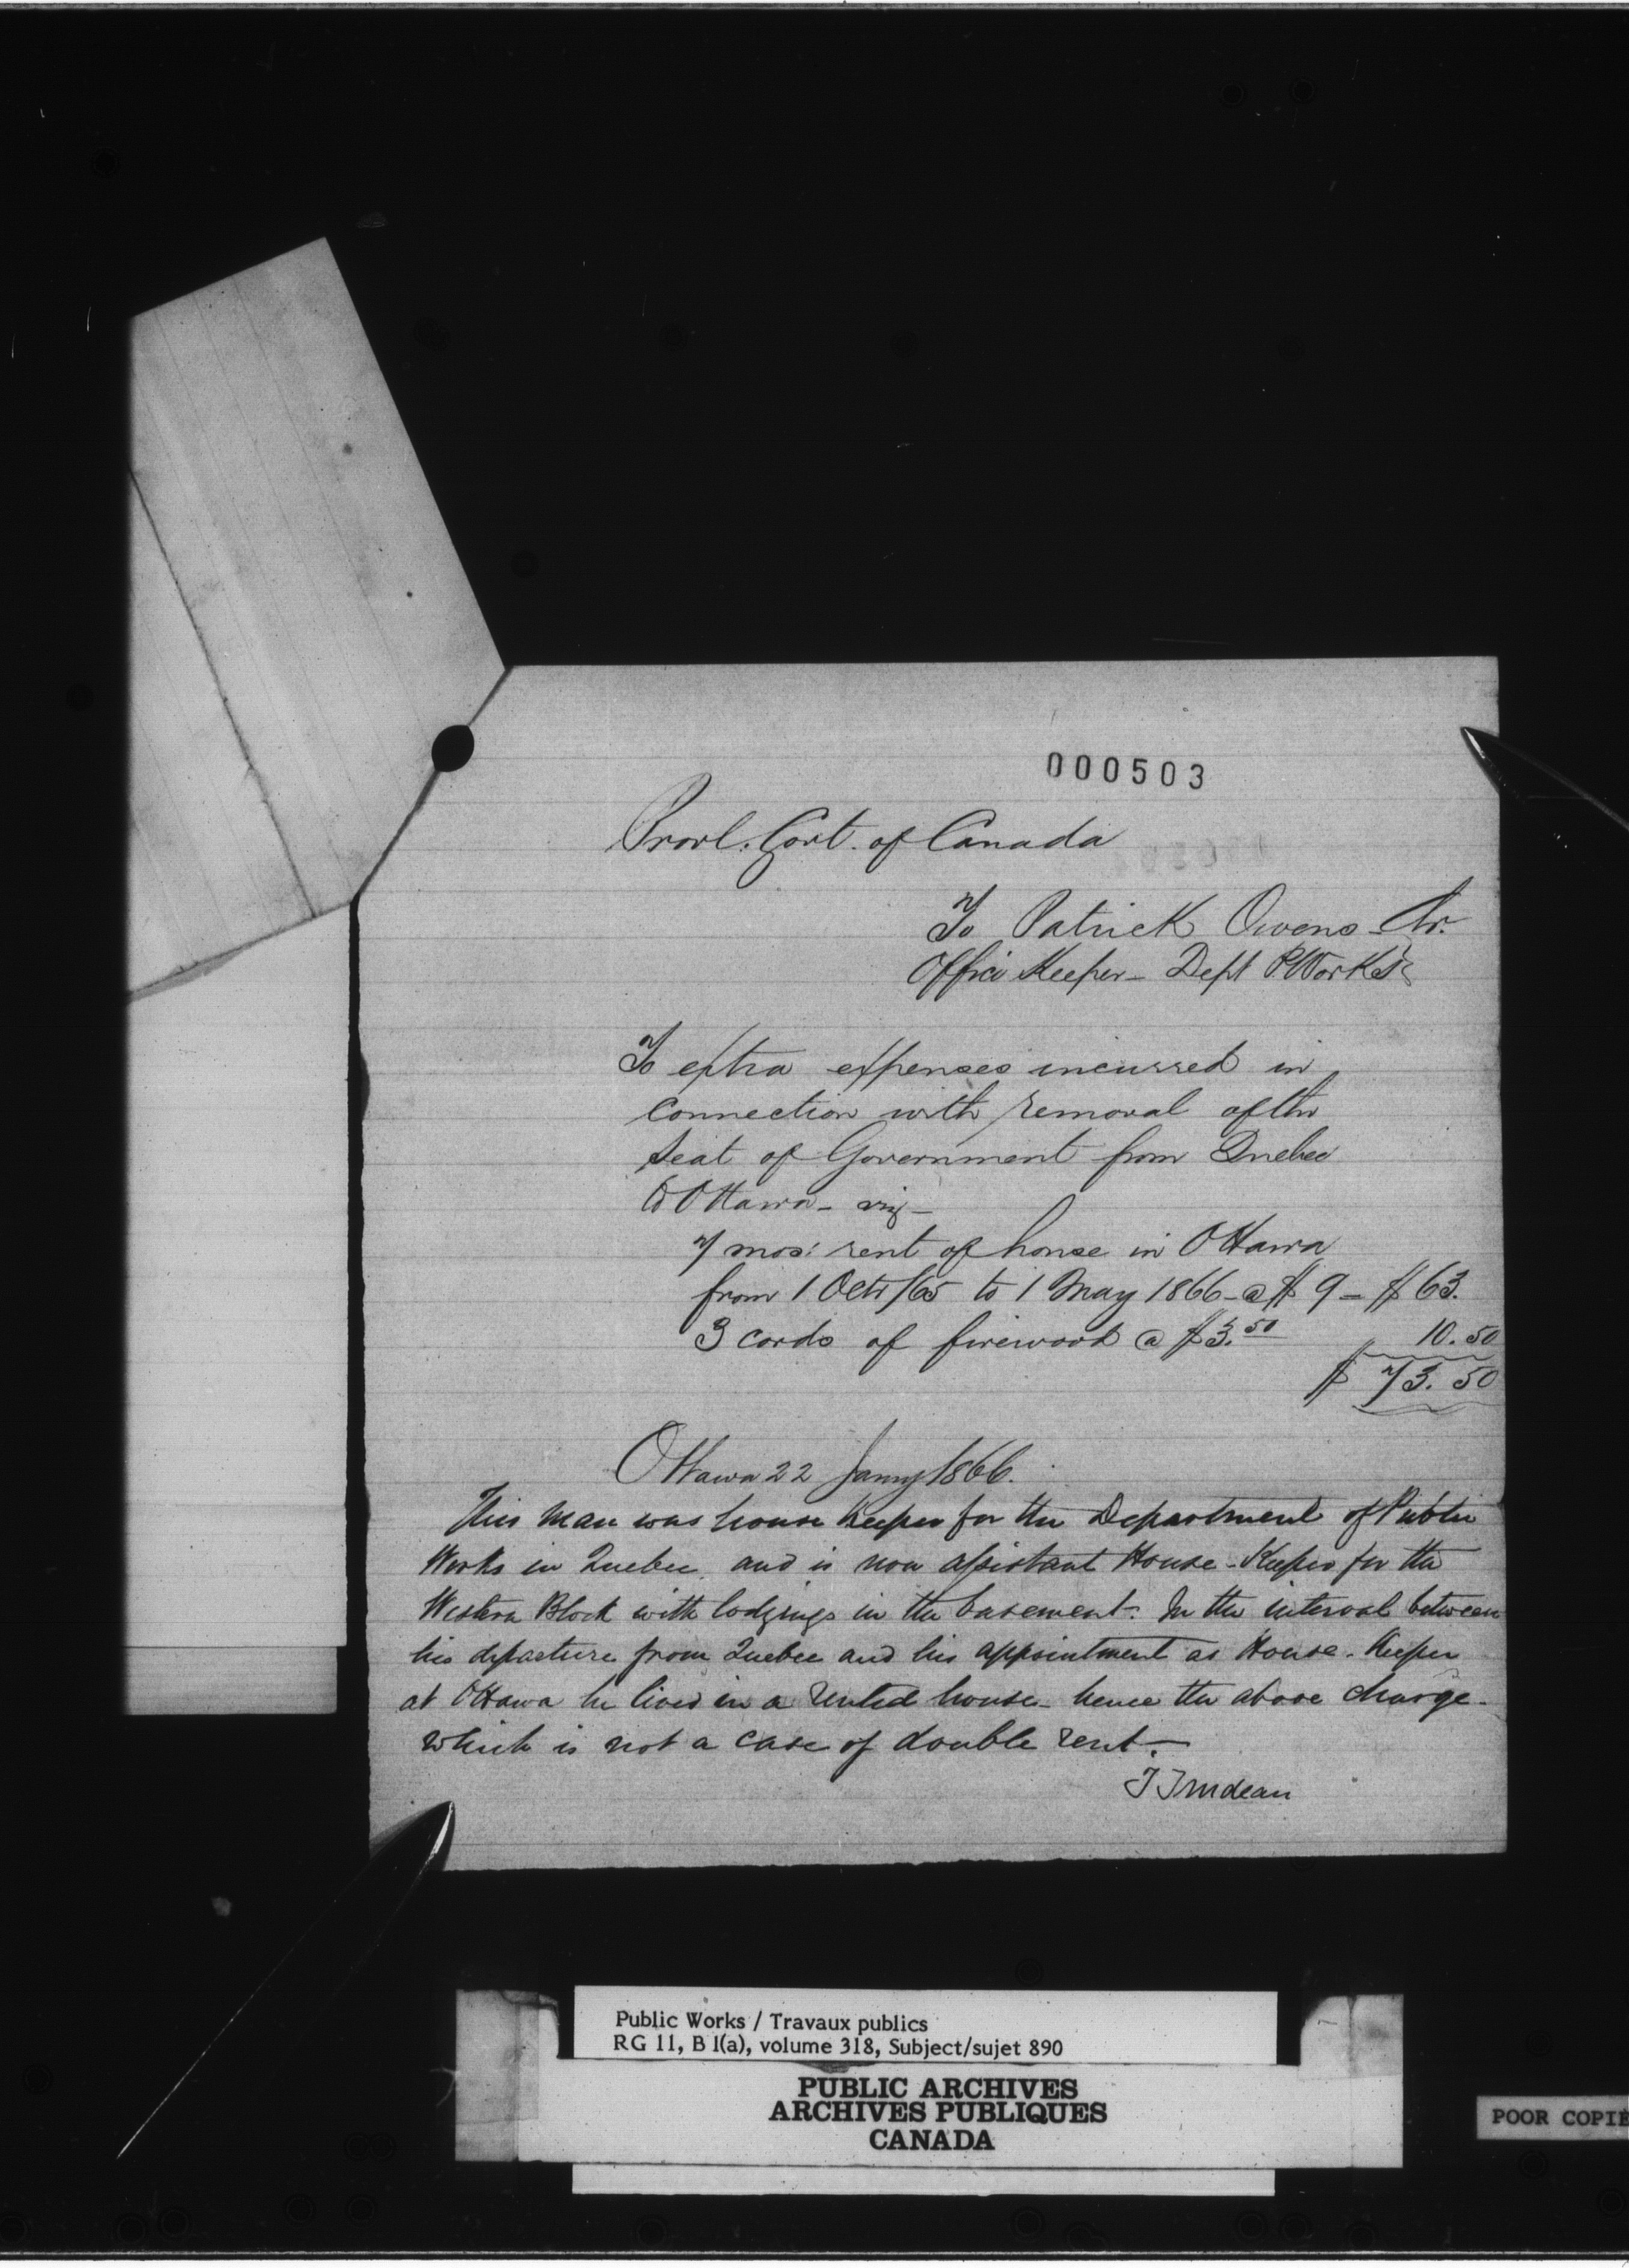 000503
Provl. Govt. of Canada
To Patrick Owens Dr.
Office Keeper - Dept P. Works
To extra expenses incurred in
connection with removal of the
seat of Government from Quebec
to Ottawa - viz -
7 mos: rent of house in Ottawa
from 1 Octr/65 to 1 May 1866 - @ $9 - $63.
3 cords of firewood @ $3.50 10.50
$73.50
Ottawa 22 Jany 1866.
This man was house keeper for the Department of Public
Works in Quebec, and is now assistant House-Keeper for the
Western Block with lodgings in the basement. In the interval between
his departure from Quebec and his appointment as House-Keeper
at Ottawa he lived in a rented house - hence the above charge -
which is not a case of double rent.
T Trudeau
Public Works / Travaux publics
RG 11, B 1(a), volume 318, Subject/sujet 890
PUBLIC ARCHIVES
ARCHIVES PUBLIQUES
CANADA
POOR COPIE